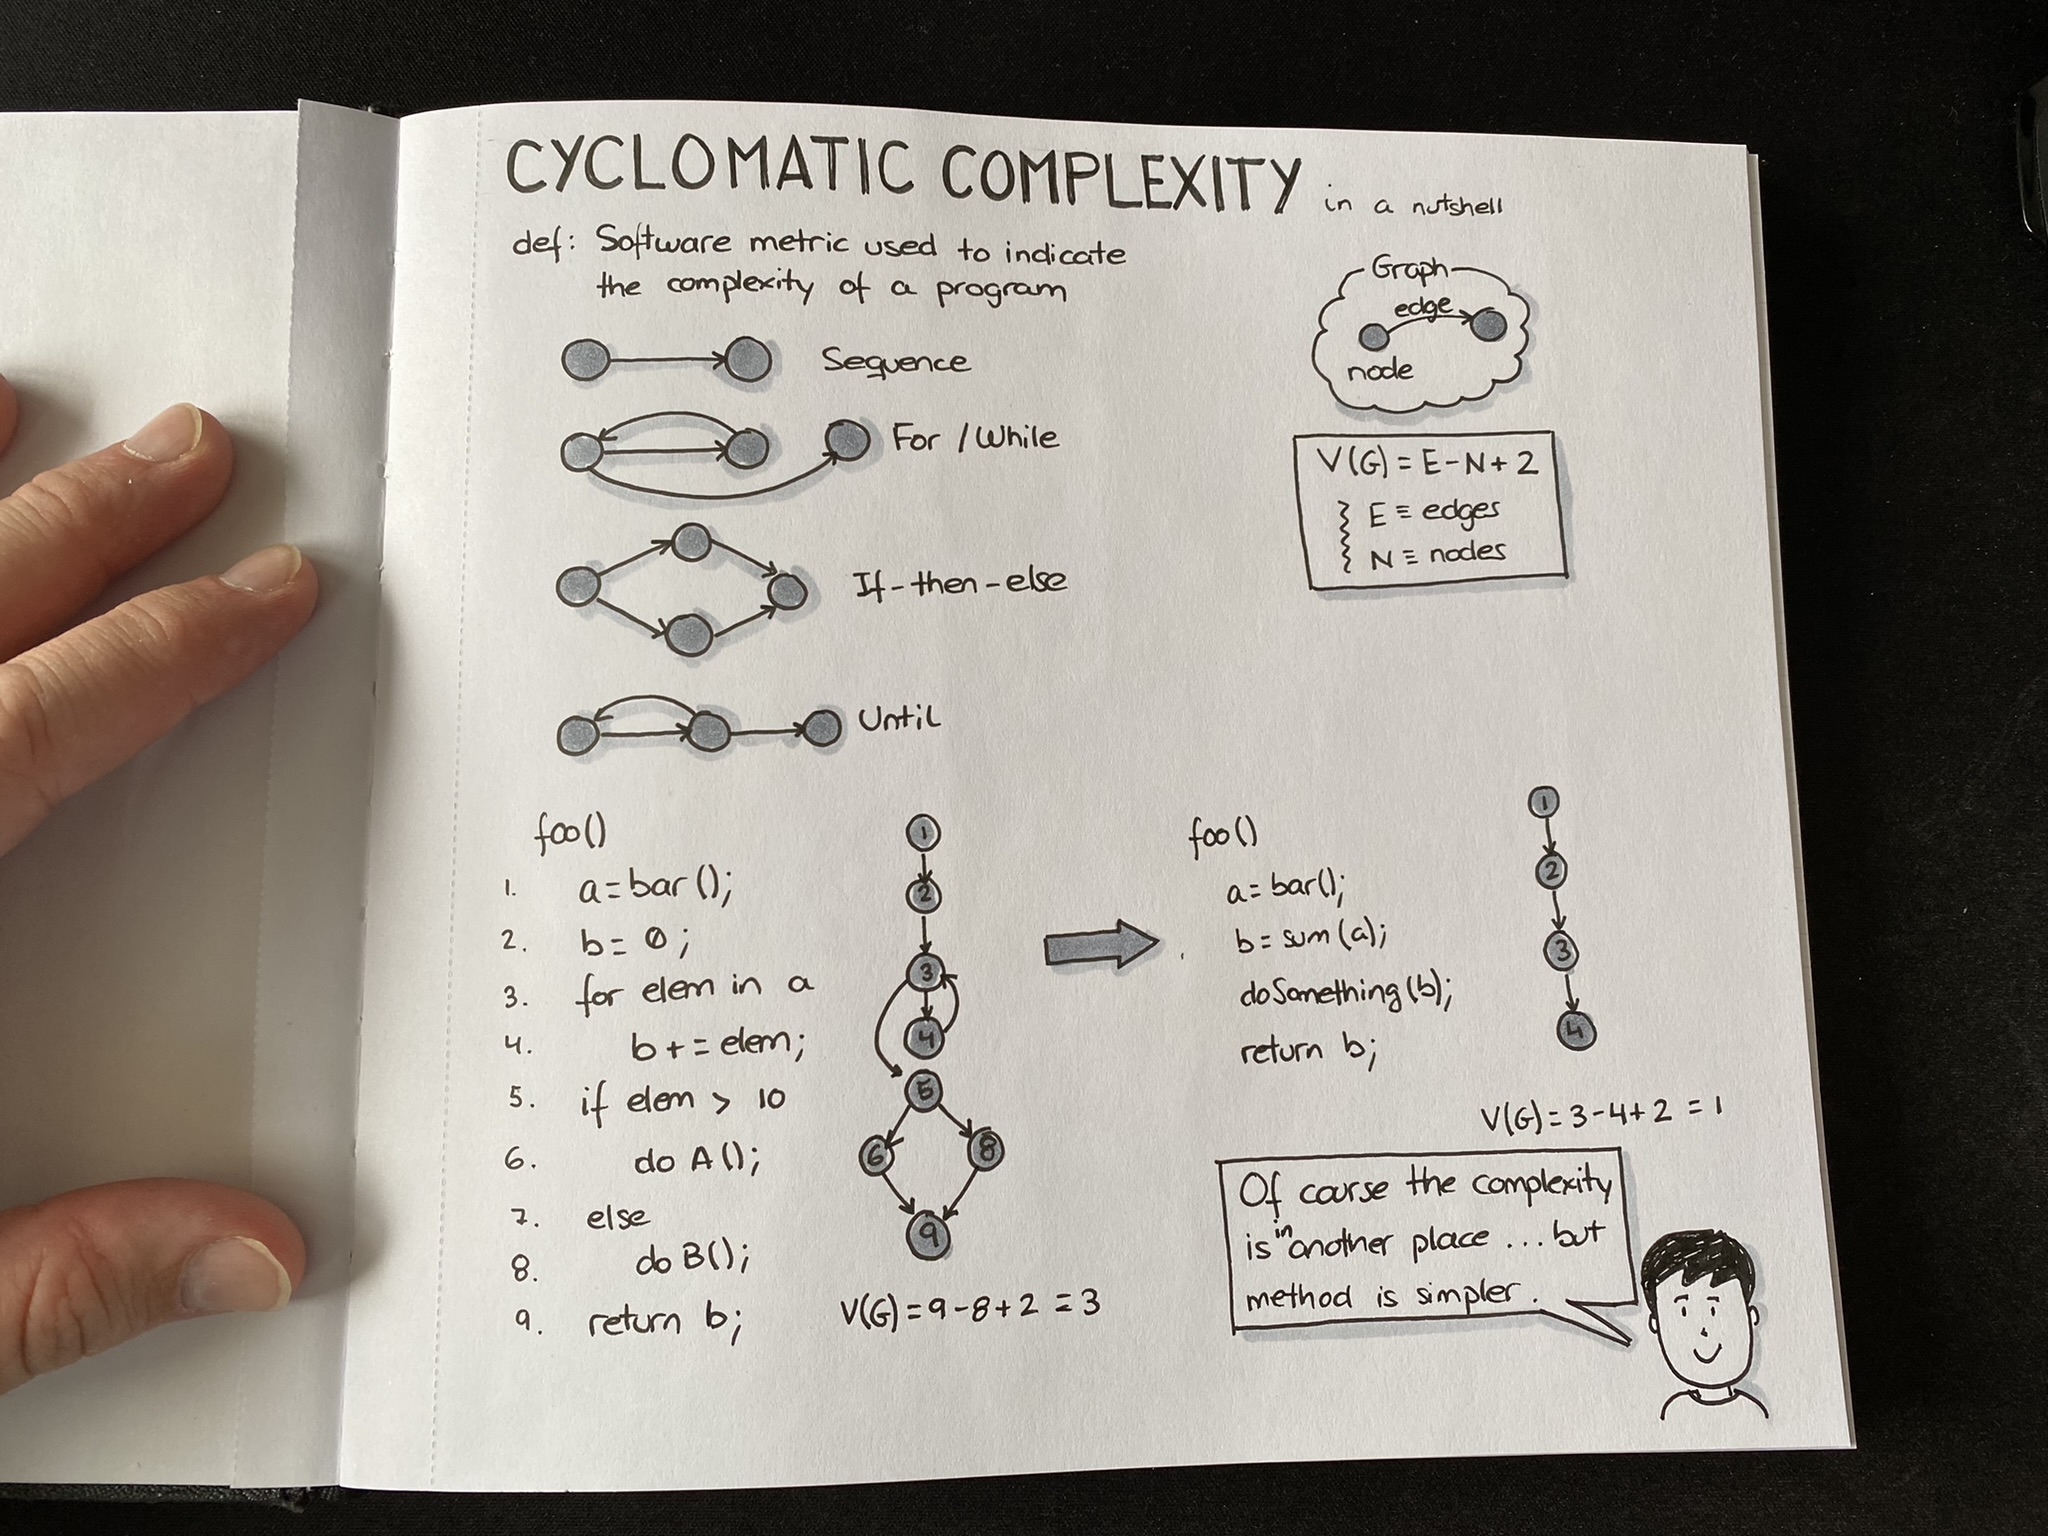 CYCLOMATIC COMPLEXITY in a nutshell
def: Software metric used to indicate
the complexity of a program
Graph
edge
node
Sequence
For / While
If-then-else
Until
V(G) = E-N+2
E ≡ edges
N ≡ nodes
foo()
1. a=bar();
2. b= 0;
3. for elem in a
4. b += elem;
5. if elem > 10
6. do A();
7. else
8. do B();
9. return b;
1
2
3
4
5
6 8
9
V(G) = 9-8+2 = 3
foo()
a= bar();
b= sum(a);
doSomething(b);
return b;
1
2
3
4
V(G) = 3-4+2 = 1
Of course the complexity
is in another place ... but
method is simpler.